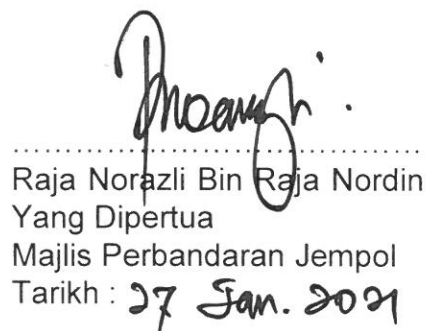 Raja Norazli Bin Raja Nordin
Yang Dipertua
Majlis Perbandaran Jempol
Tarikh : 27 Jan. 2021